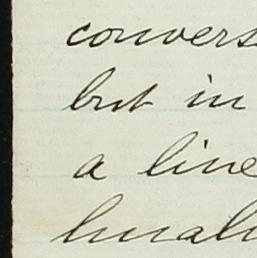 convers
but in
a line